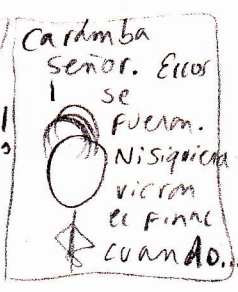 Caramba
señor. Ellos
se
fueron.
Ni siquiera
vieron
el final
cuando...